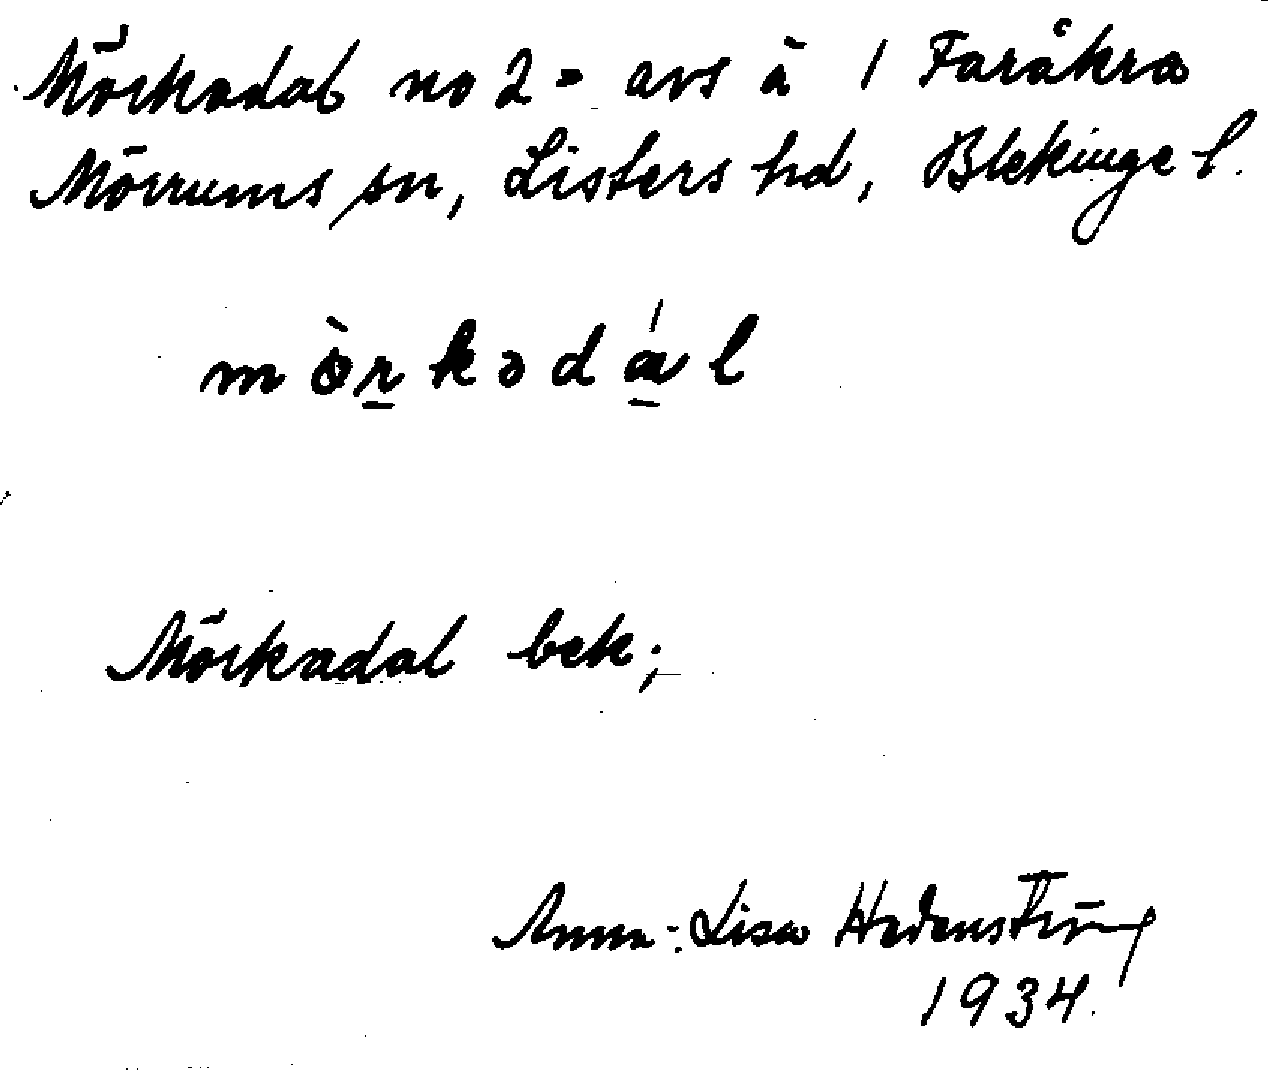 Mörkadal no 2 = avs å 1 Faråkra
Mörrums sn, Listers hd, Blekinge l.
mö̀rkədál
Mörkadal bek;
Anna-Lisa Hedenström
1934.